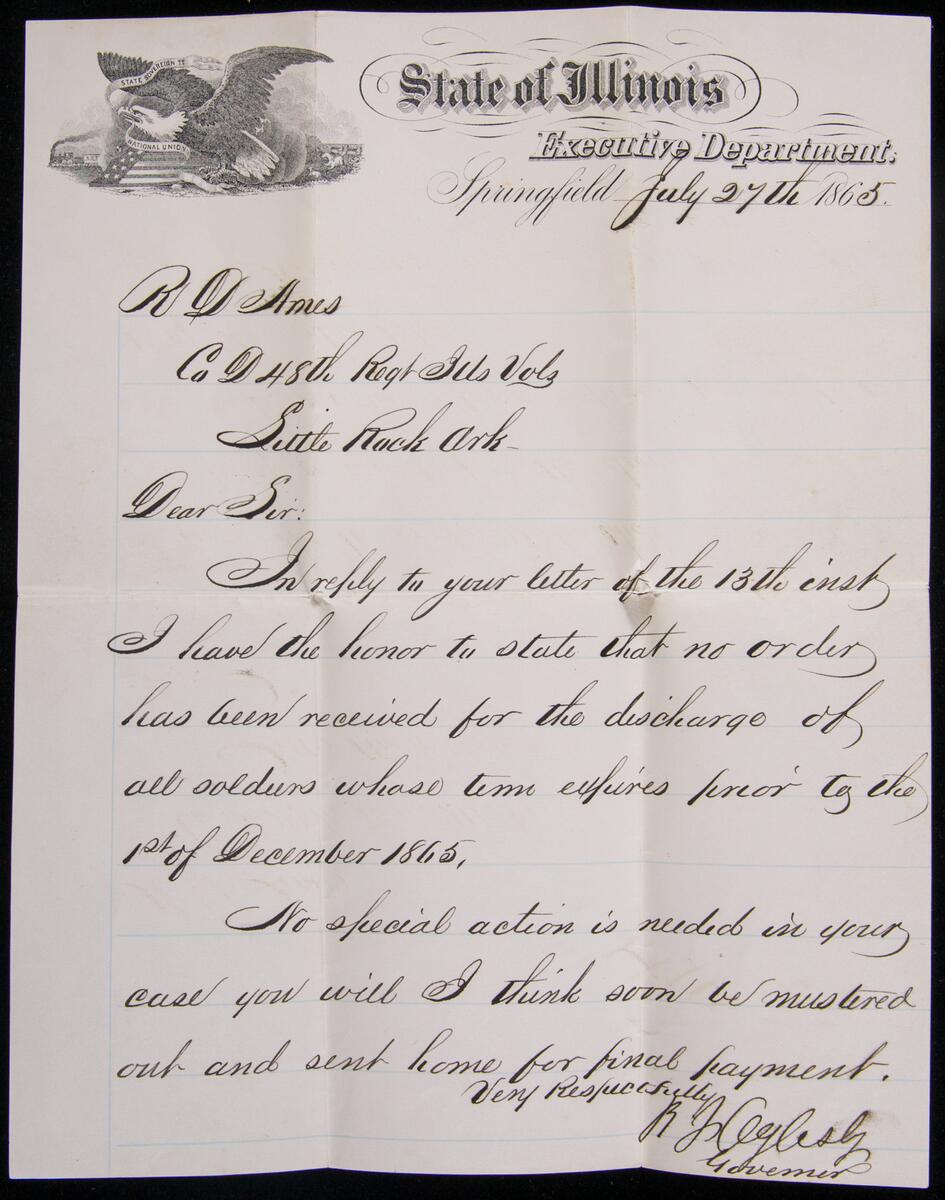 STATE SOVEREIGNTY
NATIONAL UNION
State of Illinois
Executive Department.
Springfield July 27th 1865.
R D Ames
Co D 48th Regt Ills Vols
Little Rock Ark-
Dear Sir:
In reply to your letter of the 13th inst
I have the honor to state that no order
has been received for the discharge of
all soldiers whose term expires prior to the
1st of December 1865.
No special action is needed in your
case you will I think soon be mustered
out and sent home for final payment.
Very Respectfully
R J Oglesby
Governor